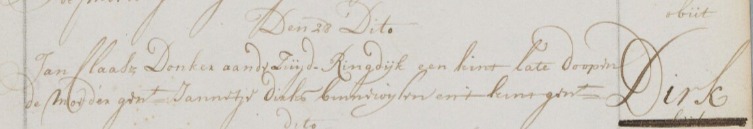 Den 28 Dito
obiit
Jan Claasz Donker aande Zuÿd-Ringdÿk een kint late doopen
de moeder gen:t Jannetje dirks binnewÿlen en't kint gen:t = Dirk
dito